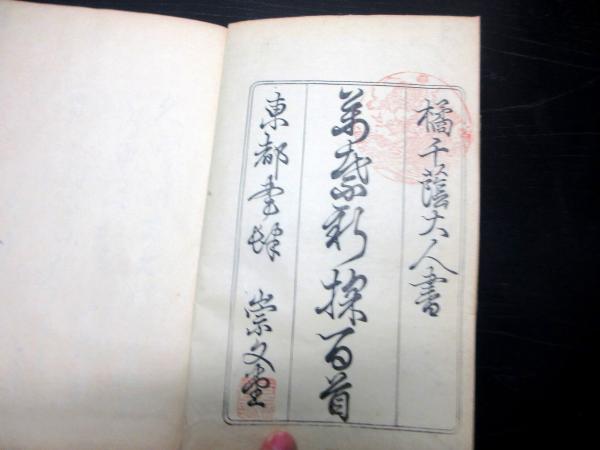 橘千蔭大人書
萬葉新採百首
東都書肆 崇文堂